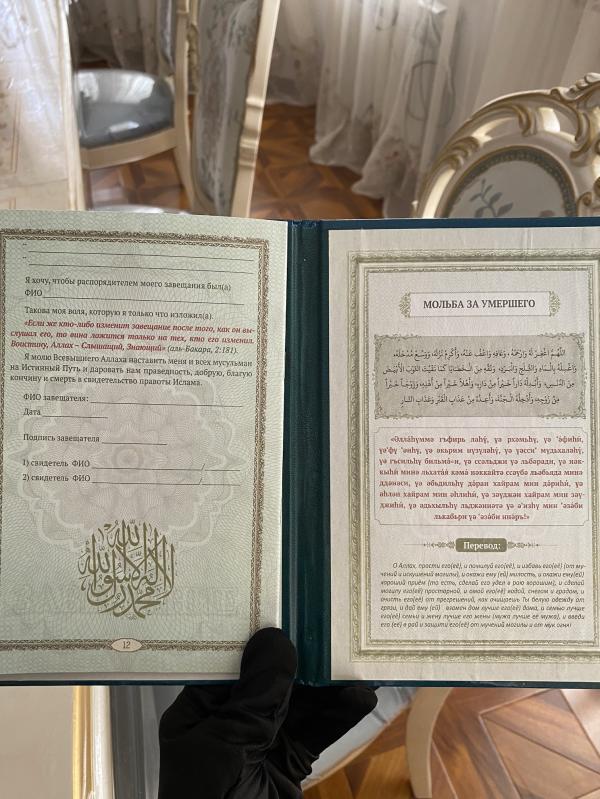 Я хочу, чтобы распорядителем моего завещания был(а)
ФИО
Такова моя воля, которую я только что изложил(а).
«Если же кто-либо изменит завещание после того, как он вы-
слушал его, то вина ложится только на тех, кто его изменил.
Воистину, Аллах – Слышащий, Знающий» (аль-Бакара, 2:181).
Я молю Всевышнего Аллаха наставить меня и всех мусульман
на Истинный Путь и даровать нам праведность, добрую, благую
кончину и смерть в свидетельство правоты Ислама.
ФИО завещателя:
Дата
Подпись завещателя
1) свидетель ФИО /
2) свидетель ФИО
لا إله إلا الله محمد رسول الله
12
МОЛЬБА ЗА УМЕРШЕГО
اللَّهُمَّ اغْفِرْ لَهُ وَارْحَمْهُ، وَعَافِهِ وَاعْفُ عَنْهُ، وَأَكْرِمْ نُزُلَهُ، وَوَسِّعْ مُدْخَلَهُ،
وَاغْسِلْهُ بِالْمَاءِ وَالثَّلْجِ وَالْبَرَدِ، وَنَقِّهِ مِنَ الْخَطَايَا كَمَا نَقَّيْتَ الثَّوْبَ الْأَبْيَضَ
مِنَ الدَّنَسِ، وَأَبْدِلْهُ دَارًا خَيْرًا مِنْ دَارِهِ، وَأَهْلًا خَيْرًا مِنْ أَهْلِهِ، وَزَوْجًا خَيْرًا
مِنْ زَوْجِهِ، وَأَدْخِلْهُ الْجَنَّةَ، وَأَعِذْهُ مِنْ عَذَابِ الْقَبْرِ وَعَذَابِ النَّارِ
«Әллāhуммə гъфирь лəhу́, үə рхəмьhу, үə 'ə́фиhи́,
үə'фу 'əнhу, үə əкьрим нүзүлəhу́, үə үəсси' мүдьхалəhу́,
үə гъсильhу бильмə́-и, үə ссəльджи үə льбəради, үə нəк-
кыhи́ минə льхатайа́ кəмə́ нəккайтə ссəүбə льəбьяда минə
ддəнəси, үə əбьдильhу дə́ран хайрам мин дə́риhи́, үə
əhлəн хайрам мин əhлиhи́, үə зəүджəн хайрам мин зəү-
джиhи́, үə əдьхыльhу льджəннəтə үə ə'изhу мин 'əзə́би
лькабьри үə 'əзə́би ннə́рь!»
Перевод:
О Аллах, прости его(её), и помилуй его(её), и избавь его(её) (от му-
чений и искушений могилы), и окажи ему (ей) милость, и окажи ему(ей)
хороший приём (то есть, сделай его удел в раю хорошим), и сделай
могилу его(её) просторной, и омой его(её) водой, снегом и градом, и
очисть его(её) от прегрешений, как очищаешь Ты белую одежду от
грязи, и дай ему (ей) взамен дом лучше его(её) дома, и семью лучше
его(её) семьи и жену лучше его жены (мужа лучше её мужа), и введи
его (её) в рай и защити его(её) от мучений могилы и от мук огня!